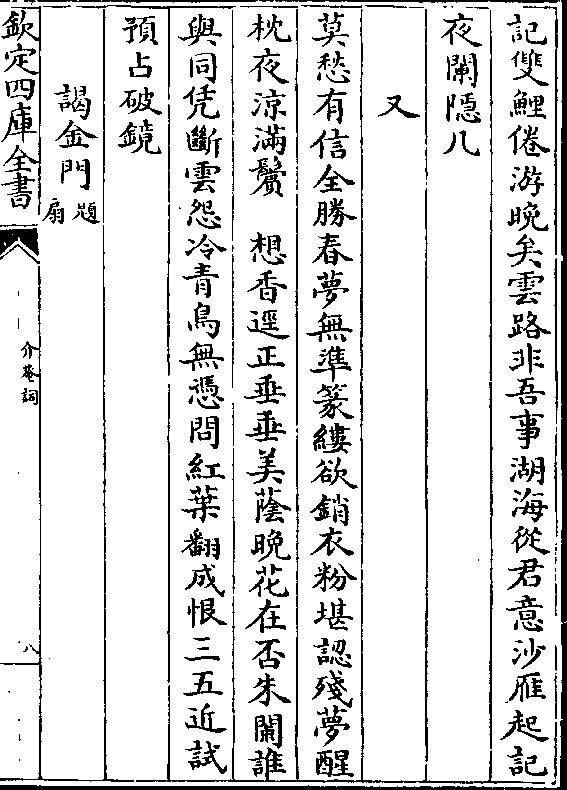 記雙鯉倦游晚矣雲路非吾事湖海從君意沙雁起記
夜闌隠几
又
莫愁有信全勝春夢無準篆縷欲銷衣粉堪認殘夢醒
枕夜涼滿鬢　想香逕正垂垂美蔭晚花在否朱闌誰
與同凭斷雲怨冷青鳥無憑問紅葉翻成恨三五近試
預占破鏡
謁金門題扇
欽定四庫全書
介菴詞
八